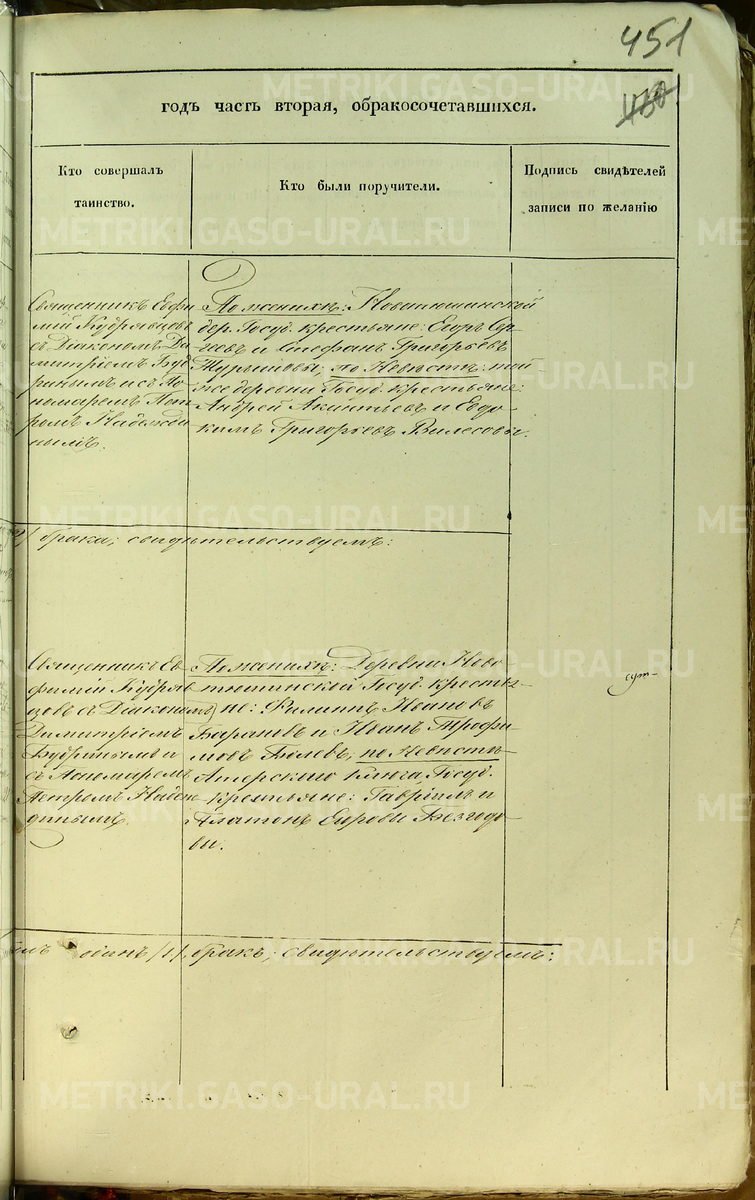 451
450
годъ часть вторая, обракосочетавшихся.
Кто совершалъ
таинство.
Кто были поручители.
Подпись свидѣтелей
записи по желанію
Священникъ Евфи
мій Кудрявцовъ
съ Діакономъ Ди
митріемъ Буд
ринымъ и съ По
номаремъ Пет
ромъ Надежди
нымъ.
По женихѣ:
дер. Госуд. крестьяне: Егоръ Сер
геевъ и Стефанъ Григорьевъ
по Невѣстѣ: той
же деревни Госуд. крестьяне:
Андрей Акинтьевъ и Евдо-
кимъ Григорьевъ Вилесовы.
брака, свидѣтельствуемъ:
Священникъ Ев
фимій Кудряв
цовъ съ Діакономъ
Димитріемъ
Будринымъ и
съ Пономаремъ
Петромъ Надеж
динымъ
По женихѣ: Деревни Ново
Госуд. крестья
не: Филиппъ Ивановъ
и Иванъ Трофи
мовъ по Невѣстѣ
Госуд.
крестьяне: Гавріилъ и
Платонъ Безгодо-
вы.
одинъ /1/ бракъ, свидѣтельствуемъ:
METRIKI.GASO-URAL.RU